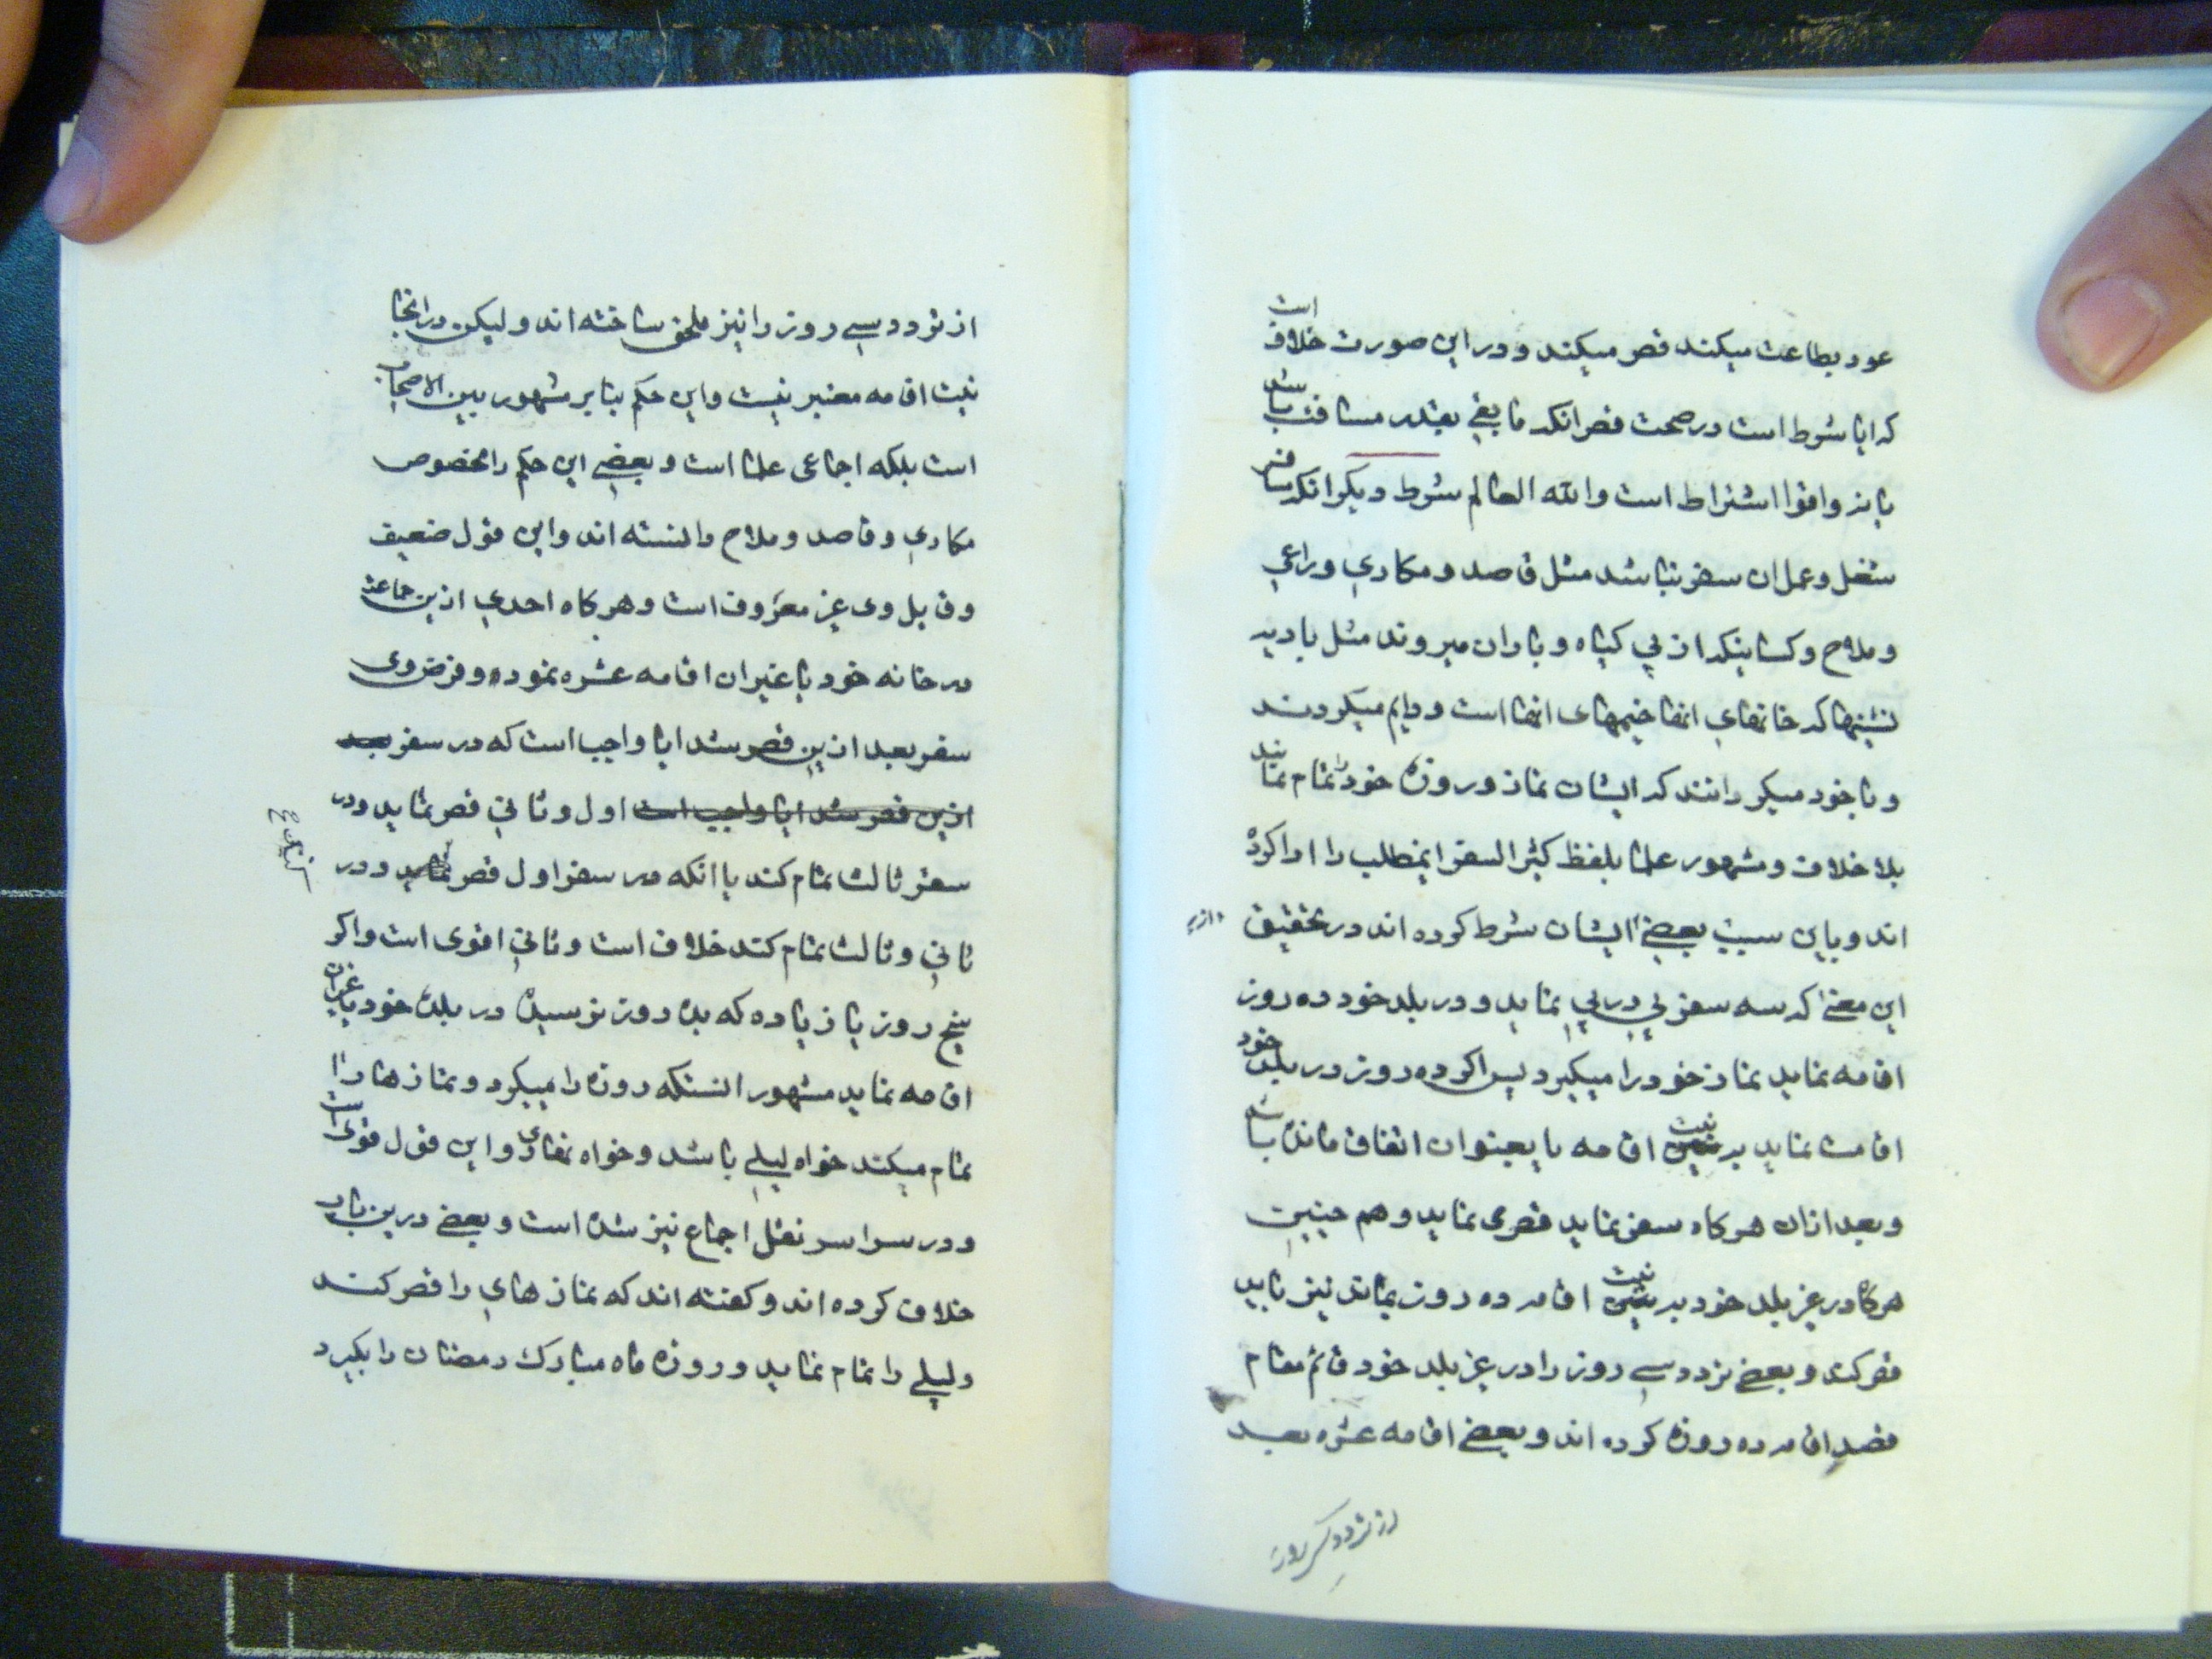 عود بطاعت میکند قصر میکند و در این صورت خلاف است
که ایا شرط است در صحت قصر انکه ما بقی بقدر مسافت باشد
یا نه واقوا اشتراط است والله العالم شرط دیکر انکه سافر
شغل و عمل ان سفر نباشد مثل قاصد و مکاری و راعی
و ملاح و کسانیکه از پی کیاه و باران میروند مثل بادیه
نشینها که خانهای انها خیمهای انها است و دایم میکردند
و با خود میکردانند که ایشان نماز و روزه خود را تمام نمایند
بلا خلاف و مشهور علما بلفظ کثیر السفر اینمطلب را ادا کرده
اند و باین سبب بعضی ایشان شرط کرده اند در تحقیق
از
این معنی که سه سفر پی در پی نماید و در بلد خود ده روز
اقامه نماید نماز خود را میکیرد پس اکر ده روز در بلد خود
اقامت نماید به نیت اقامه یا بعنوان اتفاق مانده باشد
و بعد ازان هرکاه سفر نماید قصری نماید و هم چنین
هرکاه در غیر بلد خود به نیت اقامه ده روز بماند نیز باید
قصر کند و بعضی تردد سی روز را در غیر بلد خود قائم مقام
قصد اقامه ده روزه کرده اند و بعضی اقامه عشره بعد
از تردد سی روز
از تردد سی روز را نیز ملحق ساخته اند و لیکن در انجا
نیت اقامه معتبر نیست و این حکم بنا بر مشهور بین الاصحاب
است بلکه اجماعی علما است و بعضی این حکم را مخصوص
مکاری و قاصد و ملاح دانسته اند و این قول ضعیف
و قایل وی غیر معروف است و هرکاه احدی ازین جماعت
در خانه خود یا غیر ان اقامه عشره نموده و فرض وی
سفر بعد ازین قصر شد ایا واجب است که در سفر بعد
ازین قصر شد ایا واجب است اول و ثانی قصر نماید و در
سفر ثالث تمام کند یا انکه در سفر اول قصر نماید و در
ثانی و ثالث تمام کند خلاف است و ثانی اقوی است و اکر
پنج روز یا زیاده که بده روز نرسیده در بلد خود یا غیر ان
اقامه نماید مشهور انستکه روزه را میکیرد و نماز ها را
تمام میکند خواه لیلی باشد و خواه نهاری و این قول قوی است
و در سراسر نقل اجماع نیز شده است و بعضی درین باب
خلاف کرده اند و کفته اند که نماز های را قصر کند
و لیلی را تمام نماید و روزه ماه مبارک رمضان را بکیرد